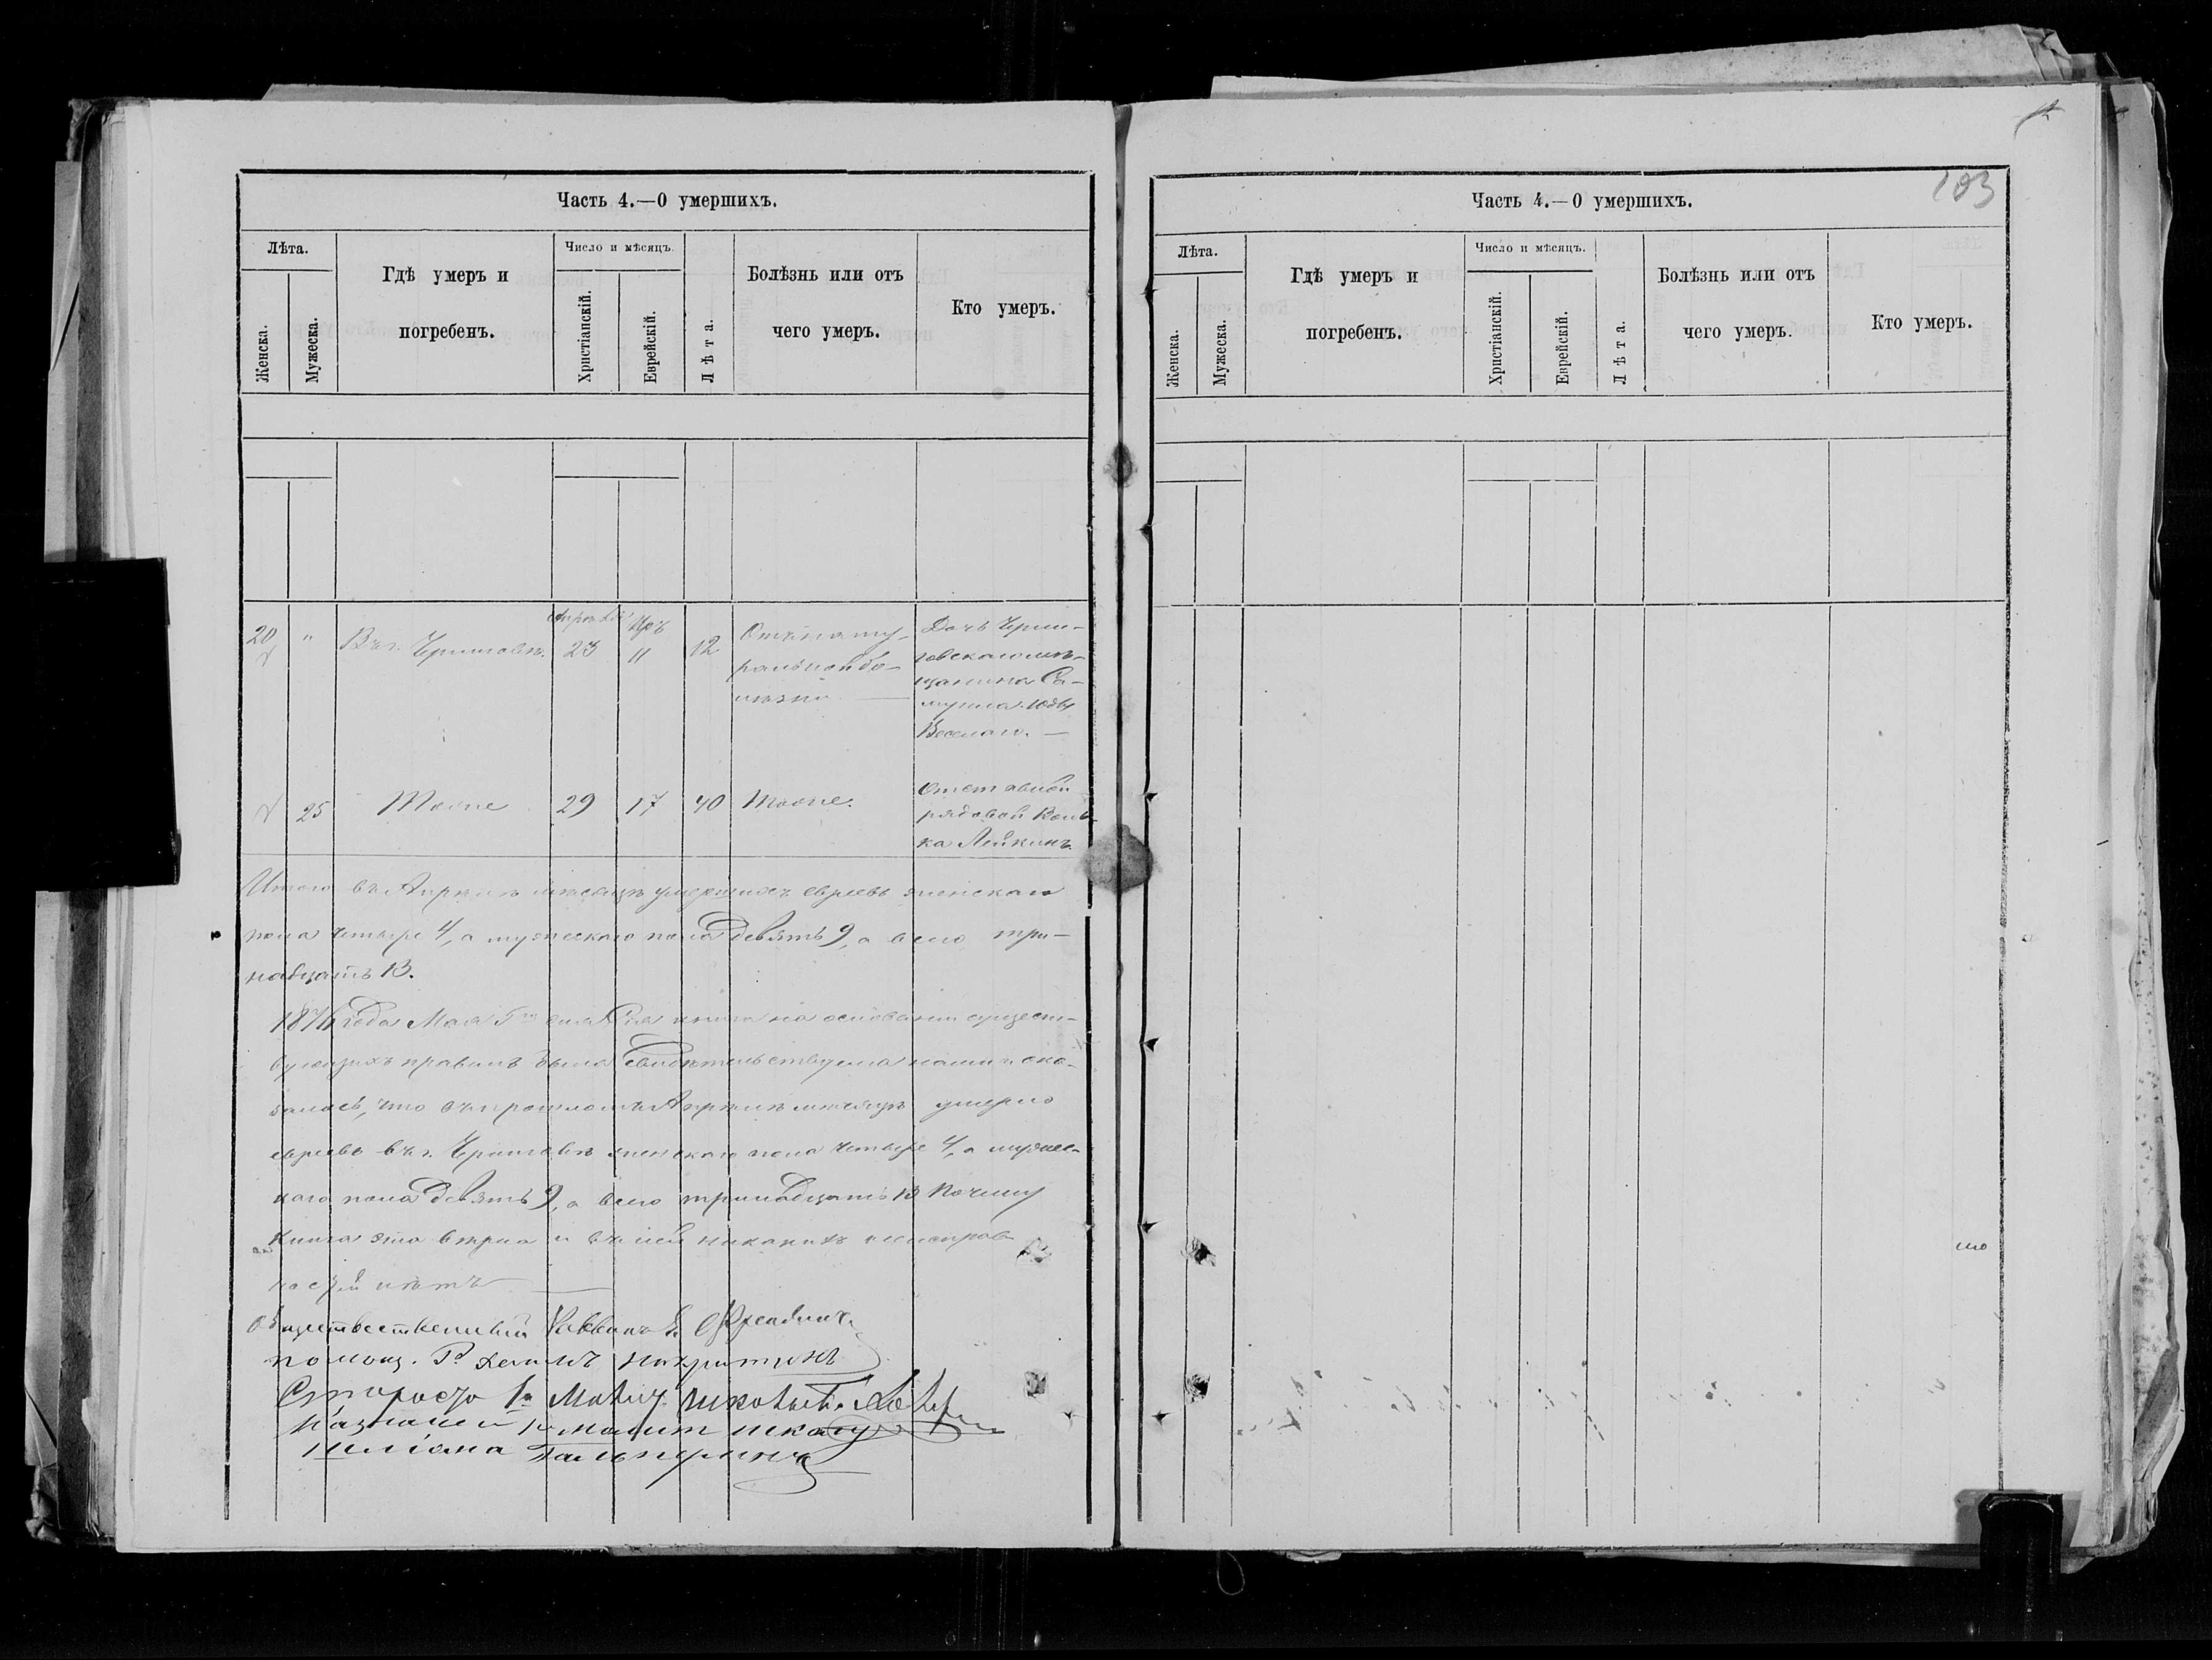 Часть 4.—О умершихъ.
Лѣта.
Женска.
Мужеска.
Гдѣ умеръ и
погребенъ.
Число и мѣсяцъ.
Христіанскій.
Еврейскій.
Лѣта.
Болѣзнь или отъ
чего умеръ.
Кто умеръ.
20
"
Въ г. Черниговѣ.
23
11
12
Отъ нату-
ральной бо-
лѣзни —
Дочь Черни-
говскаго мѣ-
щанина Са-
муила Юды
25
Тоже
29
17
40
Тоже.
Отставной
рядовой Воль-
ка Лейкинъ
Итого въ Апрѣлѣ мѣсяцѣ умершихъ евреевъ женскаго
пола четыре 4, а мужескаго пола девять 9, а всего три-
надцать 13.
1876 года Мая дня Сія книга на основаніи сущест-
вующихъ правилъ была свидѣтельствуема нами и ока-
залось, что въ прошломъ Апрѣлѣ мѣсяцѣ умерло
евреевъ въ г. Черниговѣ женскаго пола четыре 4, а мужес-
каго пола девять 9, а всего тринадцать 13 почему
книга эта вѣрна и въ ней никакихъ неисправ-
ностей нѣтъ —
Общественный Раввинъ
помощ.
Староста
Казначей
Гальперинъ
Часть 4.—О умершихъ.
103
Лѣта.
Женска.
Мужеска.
Гдѣ умеръ и
погребенъ.
Число и мѣсяцъ.
Христіанскій.
Еврейскій.
Лѣта.
Болѣзнь или отъ
чего умеръ.
Кто умеръ.